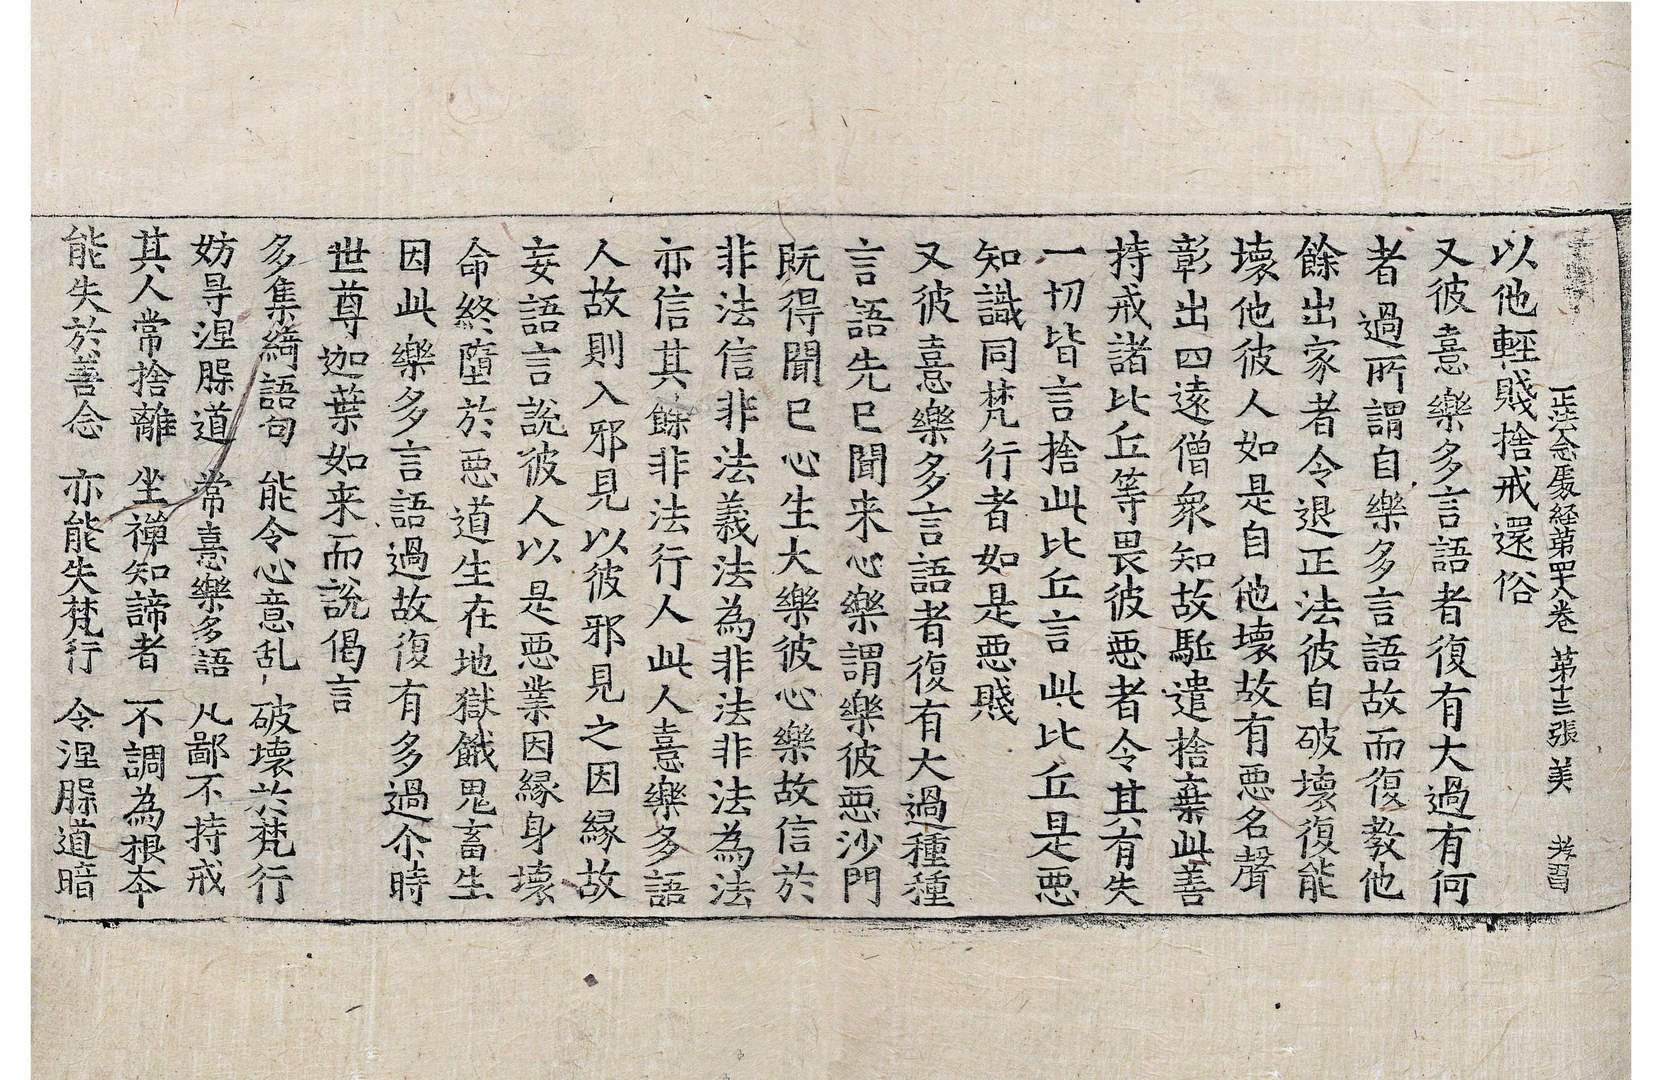 正法念處経第四六卷 第十三張 美
以他輕賤捨戒還俗
又彼憙樂多言語者復有大過有何
者過所謂自樂多言語故而復教他
餘出家者令退正法彼自破壞復能
壞他彼人如是自他壞故有惡名聲
彰出四遠僧衆知故駈遣捨棄此善
持戒諸比丘等畏彼惡者令其有失
一切皆言捨此比丘言此比丘是惡
知識同梵行者如是惡賤
又彼憙樂多言語者復有大過種種
言語先已聞来心樂謂樂彼惡沙門
既得聞已心生大樂彼心樂故信於
非法信非法義法為非法非法為法
亦信其餘非法行人此人憙樂多語
人故則入邪見以彼邪見之因縁故
妄語言說彼人以是惡業因縁身壞
命終墮於惡道生在地獄餓鬼畜生
因此樂多言語過故復有多過尒時
世尊迦葉如来而說偈言
多集綺語句 能令心意乱 破壞於梵行
妨㝵涅槃道 常憙樂多語 凡鄙不持戒
其人常捨離 坐禪知諦者 不調為根夲
能失於善念 亦能失梵行 令涅槃道暗